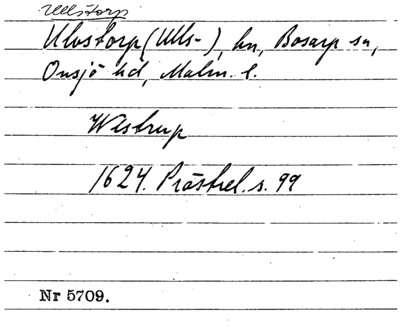 Ullstorp
Ulvstorp (Ulls-), hn, Bosarp sn,
Onsjö hd, Malm. l.
Wlstrup
1624. Prästrel. s. 99
Nr 5709.